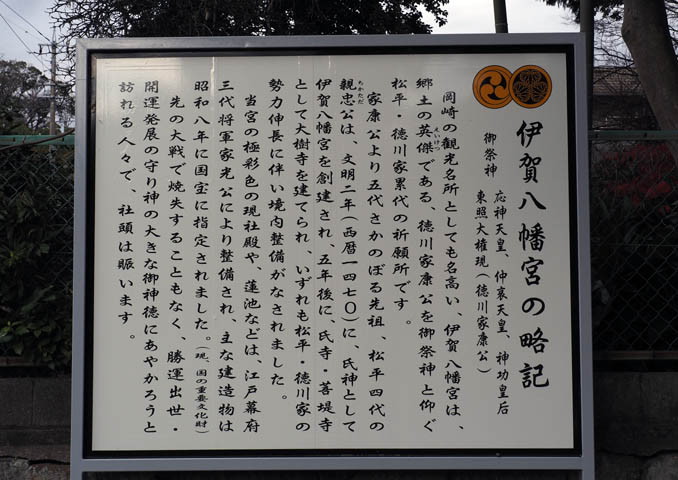 伊賀八幡宮の略記
御祭神
応神天皇、仲哀天皇、神功皇后
東照大権現(徳川家康公)
岡崎の観光名所としても名高い、伊賀八幡宮は、
郷土の英傑である、徳川家康公を御祭神と仰ぐ
えいけつ
松平・徳川家累代の祈願所です。
家康公より五代さかのぼる先祖、松平四代の
親忠公は、文明二年(西暦一四七〇)に、氏神として
ちかただ
伊賀八幡宮を創建され、五年後に、氏寺・菩堤寺
として大樹寺を建てられ、いずれも松平・徳川家の
勢力伸長に伴い境内整備がなされました。
当宮の極彩色の現社殿や、蓮池などは、江戸幕府
三代将軍家光公により整備され、主な建造物は
昭和八年に国宝に指定されました。(現、国の重要文化財)
先の大戦で焼失することもなく、勝運出世・
開運発展の守り神の大きな御神徳にあやかろうと
訪れる人々で、社頭は賑います。